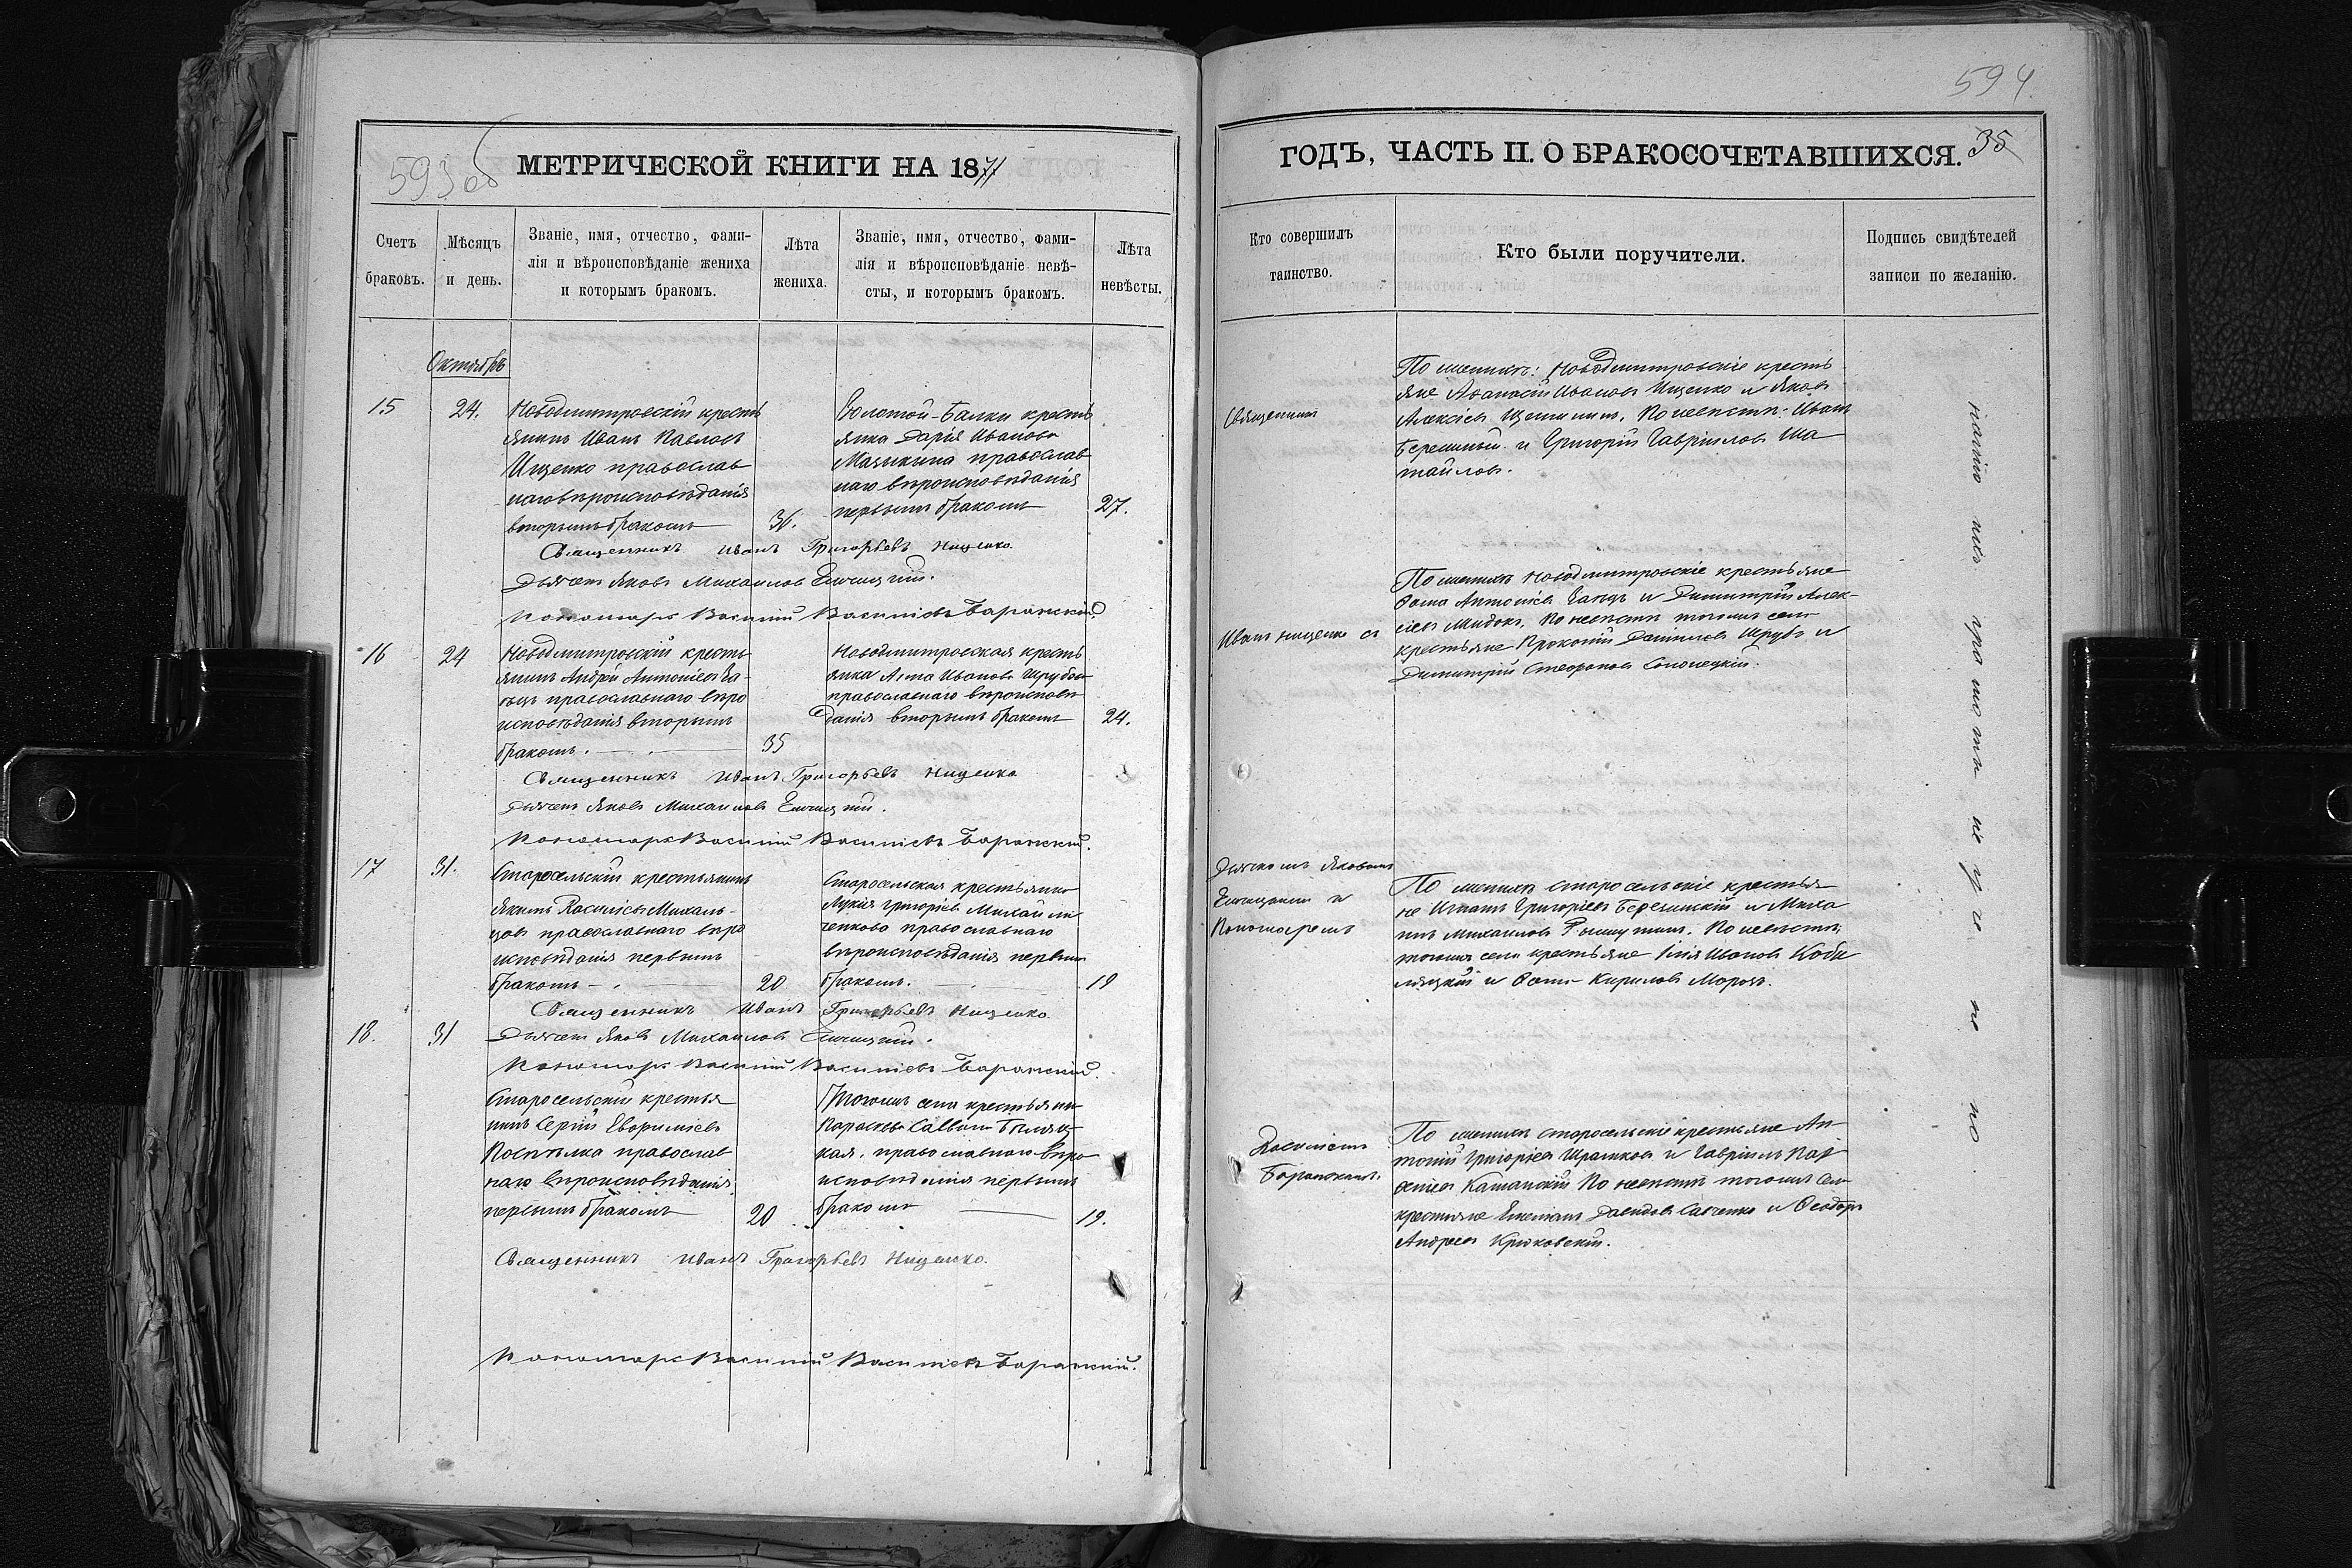 593 об
МЕТРИЧЕСКОЙ КНИГИ НА 1871
Счетъ браковъ.
Мѣсяцъ и день.
Званіе, имя, отчество, фами-
лія и вѣроисповѣданіе жениха
и которымъ бракомъ.
Лѣта жениха.
Званіе, имя, отчество, фами-
лія и вѣроисповѣданіе невѣ-
сты, и которымъ бракомъ.
Лѣта невѣсты.
Октябрь
15
24.
Новодмитровскій кресть
янинъ Иванъ Павловъ
Ищенко православ
наго вѣроисповѣданія
вторымъ бракомъ
36.
Золотой-Балки кресть
янка Дарія Иванова
православ
наго вѣроисповѣданія
первымъ бракомъ
27.
Священникъ Иванъ Григорьевъ Нищенко.
Дьячекъ Яковъ Михаиловъ
Пономарь Василій Василіевъ Баранскій.
16
24
Новодмитровскій кресть
янинъ Андрей Антоніевъ Га-
православнаго вѣро
исповѣданія вторымъ
бракомъ.
35
Новодмитровская кресть
янка Анна Иванова
православнаго вѣроисповѣ
данія вторымъ бракомъ
24.
Священникъ Иванъ Григорьевъ Нищенко
Дьячекъ Яковъ Михаиловъ
Пономарь Василій Василіевъ Баранскій.
17
31.
Старосельскій крестьянинъ
Якимъ Василіевъ Михаль-
цовъ православнаго вѣро
исповѣданія первымъ
бракомъ
20
Старосельская крестьянка
Лукія Григоріева Михайли
ченкова православнаго
вѣроисповѣданія первымъ
бракомъ.
19
Священникъ Иванъ Григорьевъ Нищенко.
18.
31
Дьячекъ Яковъ Михаиловъ
Пономарь Василій Василіевъ Баранскій.
Старосельскій крестья
нинъ Сергій Евфиміевъ
православ
наго вѣроисповѣданія
первымъ бракомъ
20
Тогожъ села крестьянка
Параскева Саввина Биляц
кая, православнаго вѣро
исповѣданія первымъ
бракомъ
19.
Священникъ Иванъ Григорьевъ Нищенко.
Пономарь Василій Василіевъ Баранскій.
594
ГОДЪ, ЧАСТЬ II. О БРАКОСОЧЕТАВШИХСЯ.
35
Кто совершилъ таинство.
Кто были поручители.
Подпись свидѣтелей
записи по желанію.
Священникъ
Иванъ Нищенко съ
Дьячкомъ Яковомъ
и
Пономаремъ
Василіемъ
Баранскимъ.
По женихѣ: Новодмитровскіе кресть
яне Афанасій Ивановъ Ищенко и Яковъ
Алексіевъ По невѣстѣ: Иванъ
и Григорій Гавріиловъ Ша
По женихѣ Новодмитровскіе крестьяне
Фома Антоніевъ и Димитрій Алек-
сіевъ По невѣстѣ тогожъ села
крестьяне Прокопій Даниловъ и
Димитрій Стефановъ
По женихѣ старосельскіе крестья
не Игнатъ Григоріевъ и Миха
илъ Михаиловъ По невѣстѣ
тогожъ села крестьяне Илія Ивановъ Кобы
ляцкій и Фома Кириловъ Морозъ.
По женихѣ старосельскіе крестьяне Ан
тоній Григоріевъ и Гавріилъ Пар
феніевъ По невѣстѣ тогожъ села
крестьяне Давидовъ Савченко и Феодоръ
Андреевъ Крыжовскій.